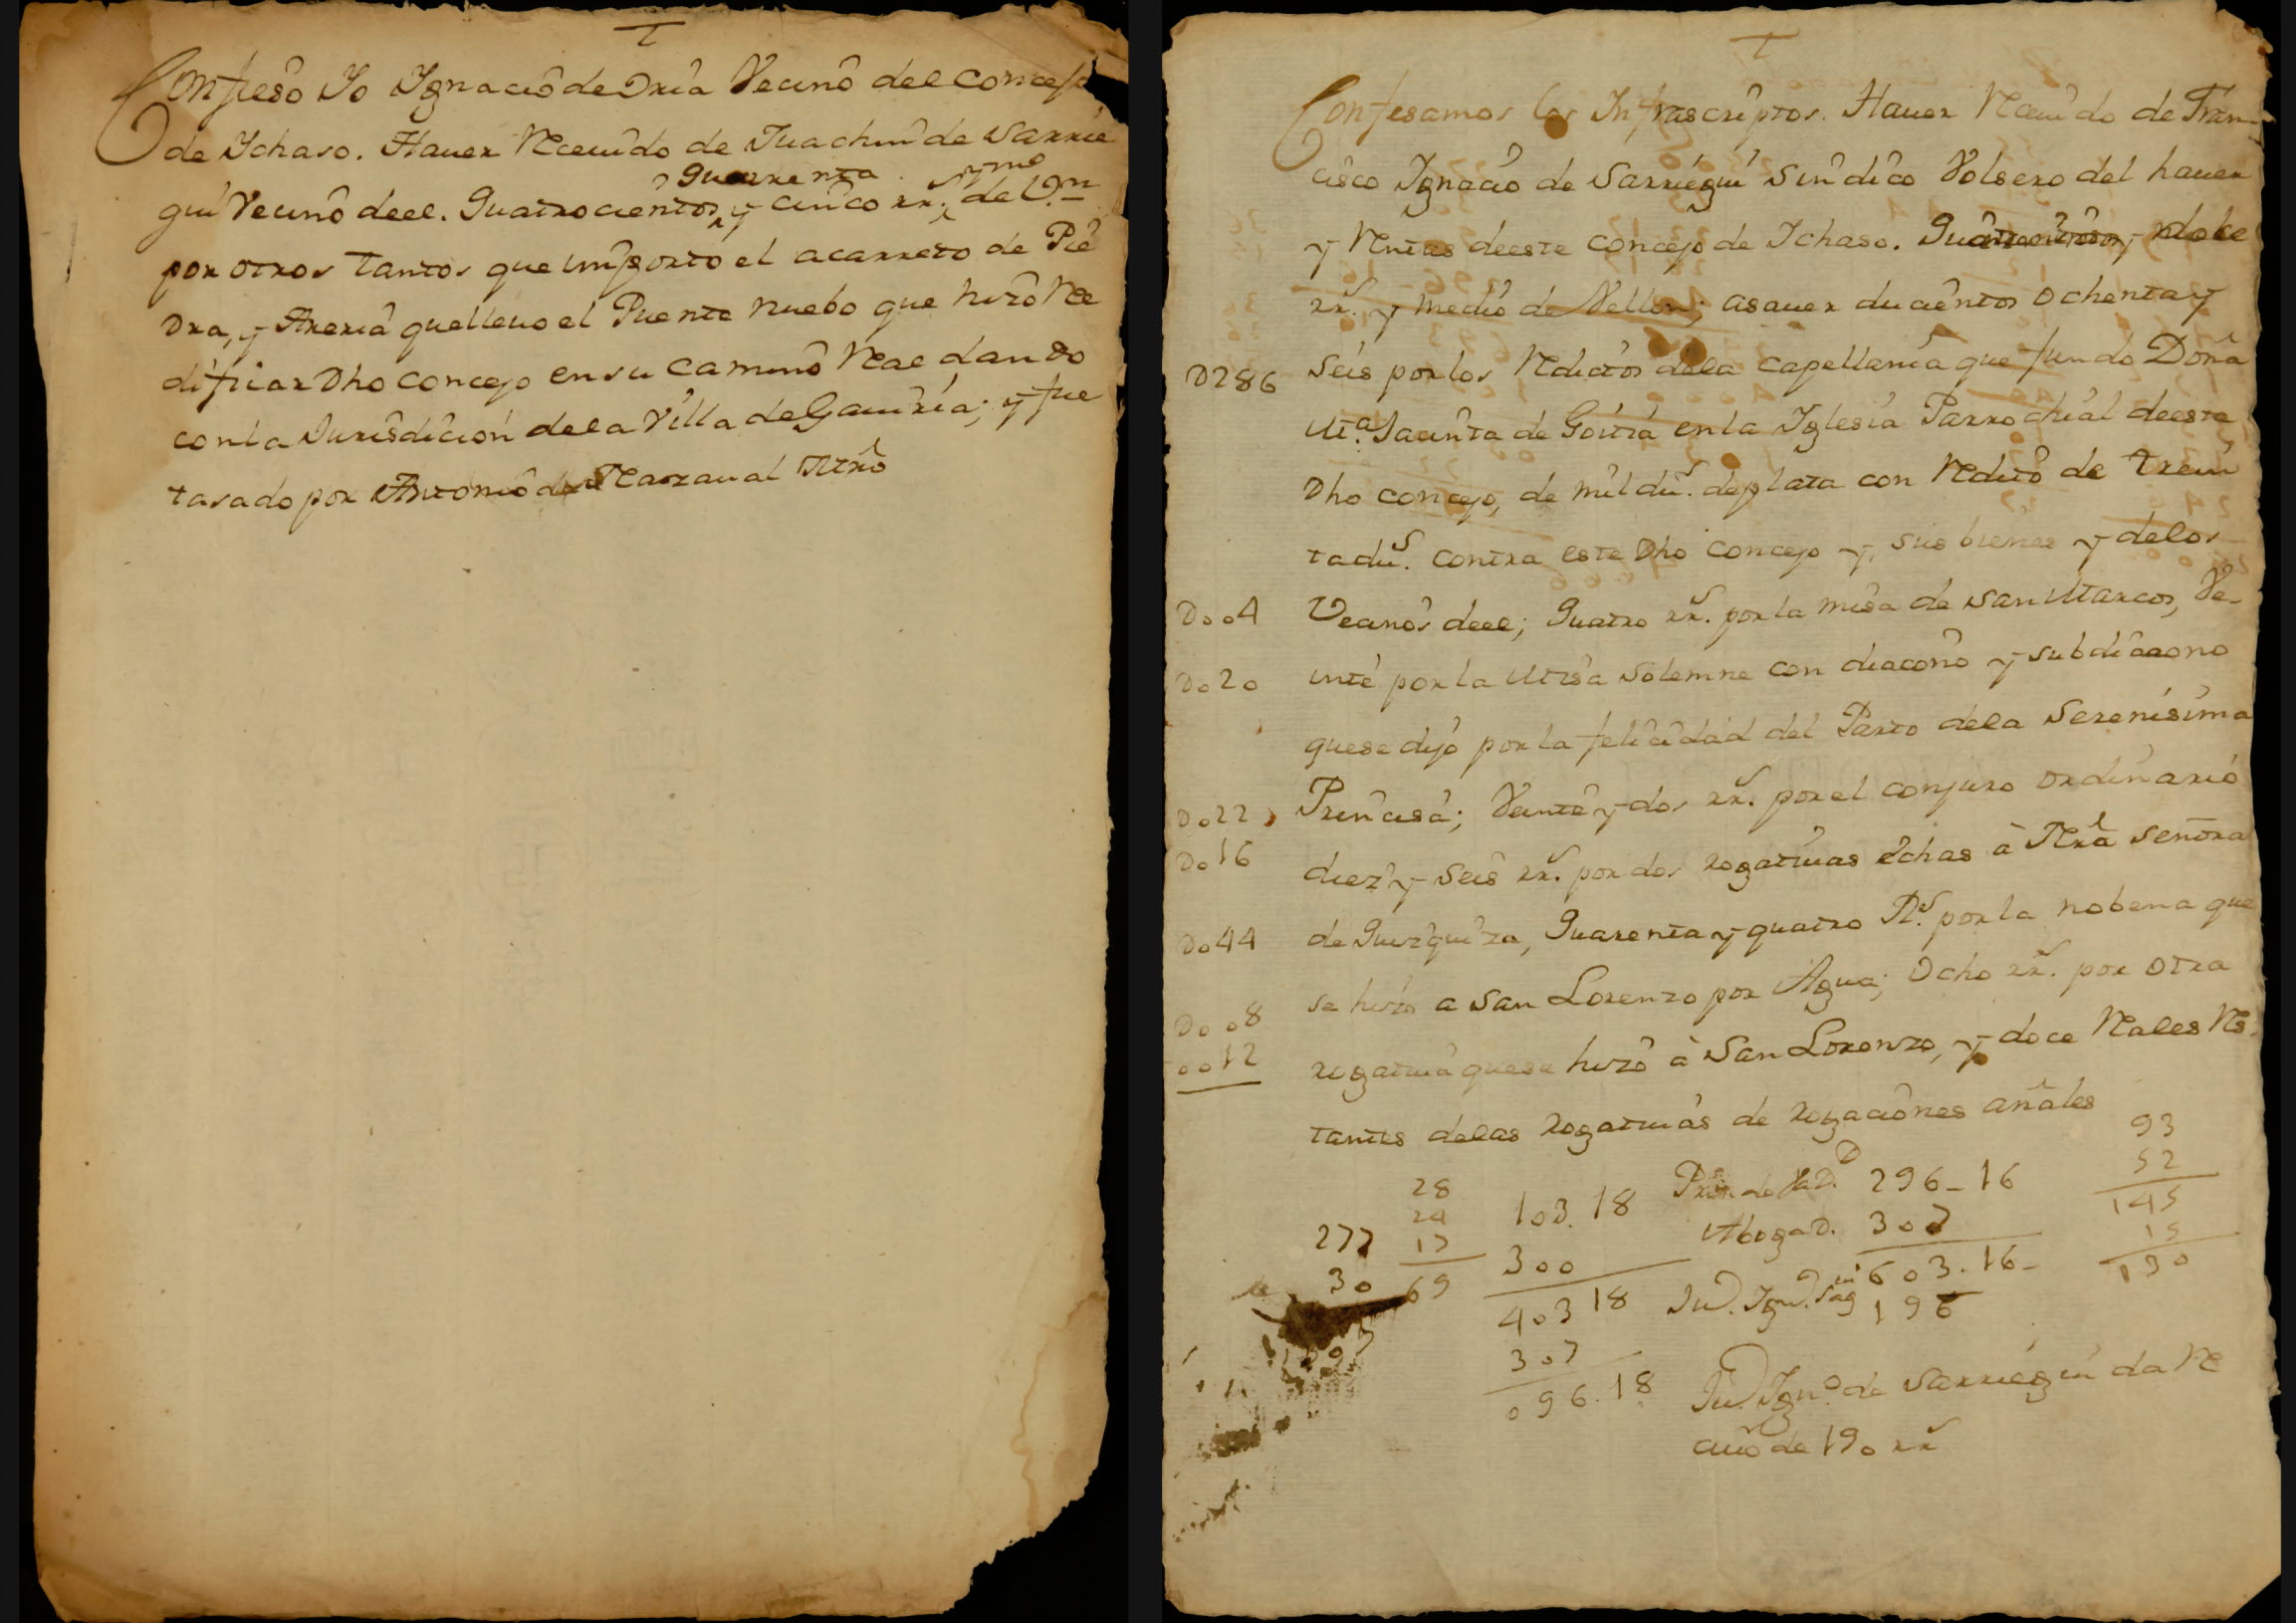 Confieso Yo Ignacio de Oria Vecino del concejo
de Ichaso. Haver Receuido de Juachin de Sarrie
quarenta y mo
gui Vecino deel. Quatrocientos y cinco rr.s de V.n
por otros tantos que importo el acarreto de Pie
dra, y Areria quelleuo el Puente nuebo que hizo Re
dificar Dho concejo en su camino Real dando
con la Jurisdicion de la Villa de Gauiria; y fue
tasado por Antonio de Larzaual Mro
Confesamos los Infrascriptos. Hauer Receuido de Fran
cisco Ignacio de Sarriegui Sindico Volsero del hauer
y Rentas deeste concejo de Ichaso. Quatrocientos y doce
rr.s y medio de Vellon; asauer ducientos ochenta y
D286 seis por los Reditos dela capellania que fundo Doña
M.a Jacinta de Goitia en la Iglesia Parrochial deeste
Dho concejo, de mil du.s deplata con Redito de trein
ta du.s contra este Dho concejo y sus bienes y delos
Doo4 Vecinos deel; Quatro rr.s por la misa de san Marcos, Ve-
Do20 inte por la Misa solemne con diacono y subdiacono
quese dijo por la felicidad del Parto dela Serenisima
Do22 Princisa; Veinte y dos rr.s por el conjuro ordinario
Do16 diez y seis rr.s por dos rogatiuas echas à Nra señora
Do44 de Quizquiza, Quarenta y quatro R.s por la nobena que
se hizo a san Lorenzo por Agua; Ocho rr.s por otra
Doo8 rogatiua quese hizo à San Lorenzo, y doce Reales Res
oo12
tantes delas rogatiuas de rogaciones añales
28 103.18 296-16 93
24 Abogad. 307 52
277 17 300 603.16- 145
30 69 403 18 Ju. Ign. Sag 196 15
190
307
096.18 Ju. Ign.o de Sarriegui da Re
ciuo de 190 rr.s